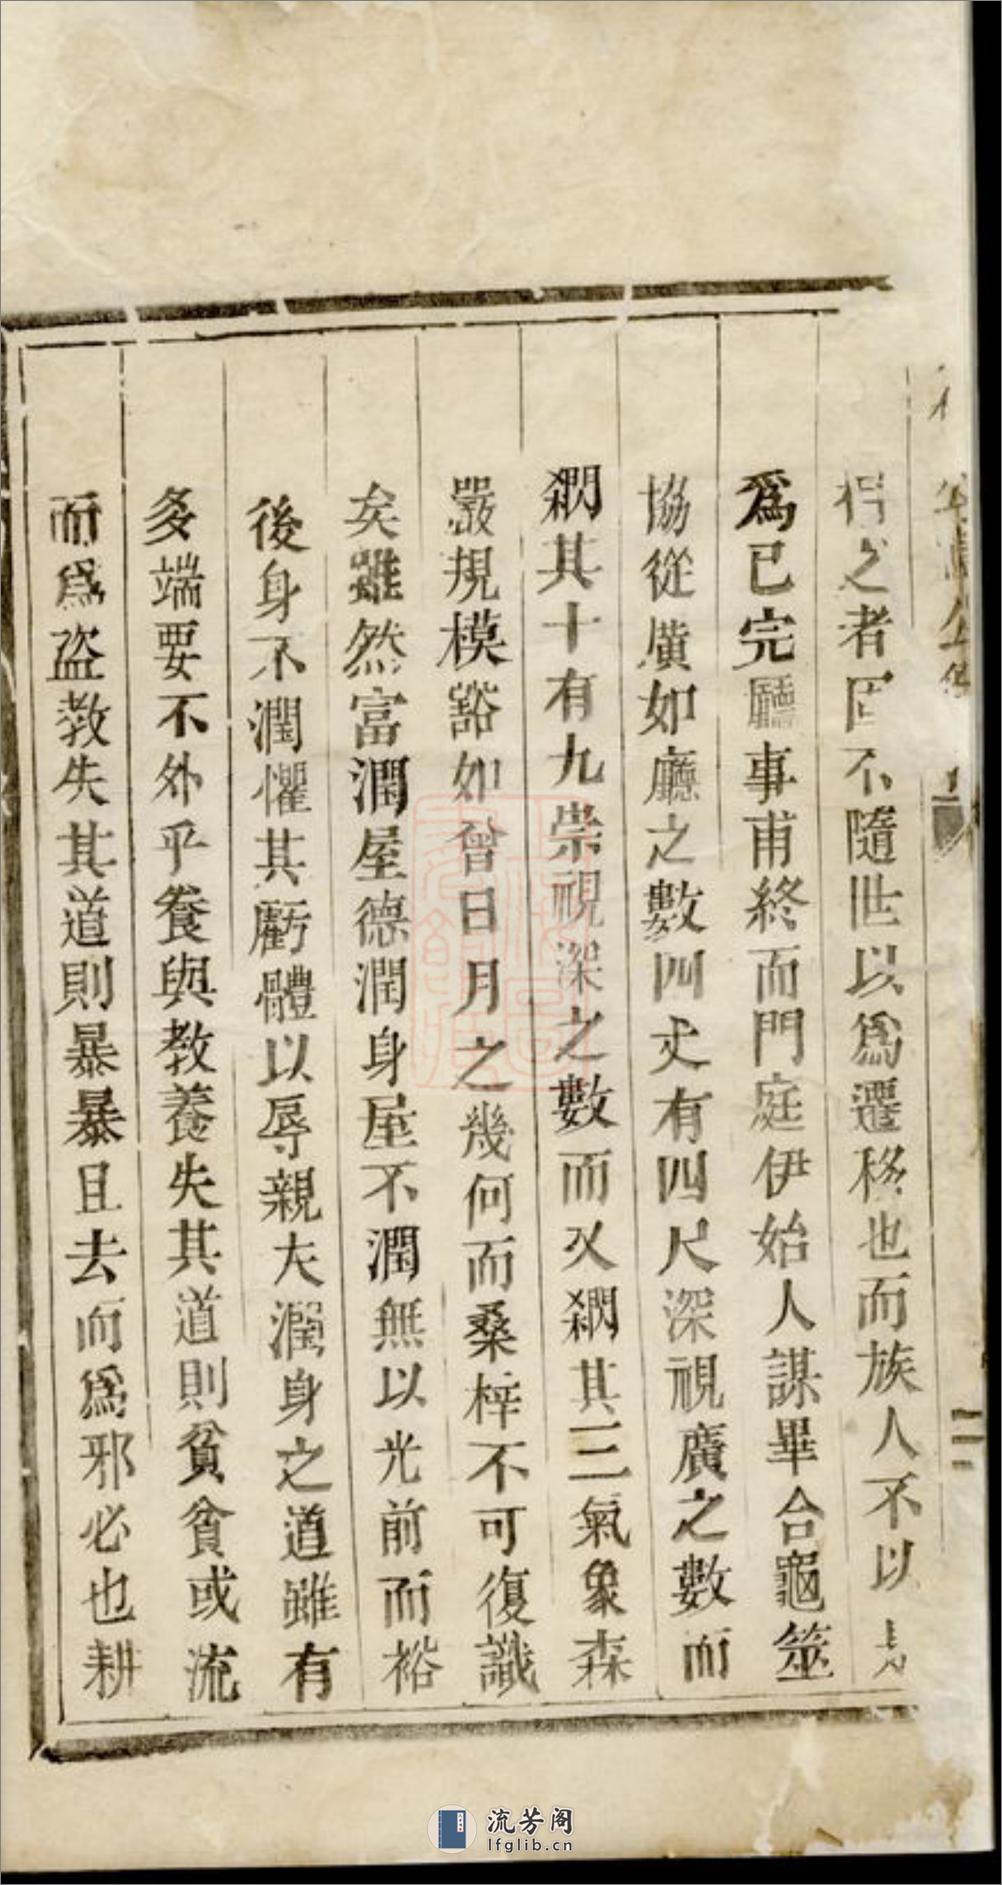 行之者固不隨世以爲遷移也而族人不以
爲已完廳事甫終而門庭伊始人謀畢合龜筮
協從廣如廳之數四丈有四尺深視廣之數而
閷其十有九崇視深之數而又閷其三氣象森
嚴規模豁如曾日月之幾何而桑梓不可復識
矣雖然富潤屋德潤身屋不潤無以光前而裕
後身不潤懼其虧體以辱親夫潤身之道雖有
多端要不外乎養與教養失其道則貧貧或流
而爲盜教失其道則暴暴且去而爲邪必也耕
流芳阁
lfglib.cn